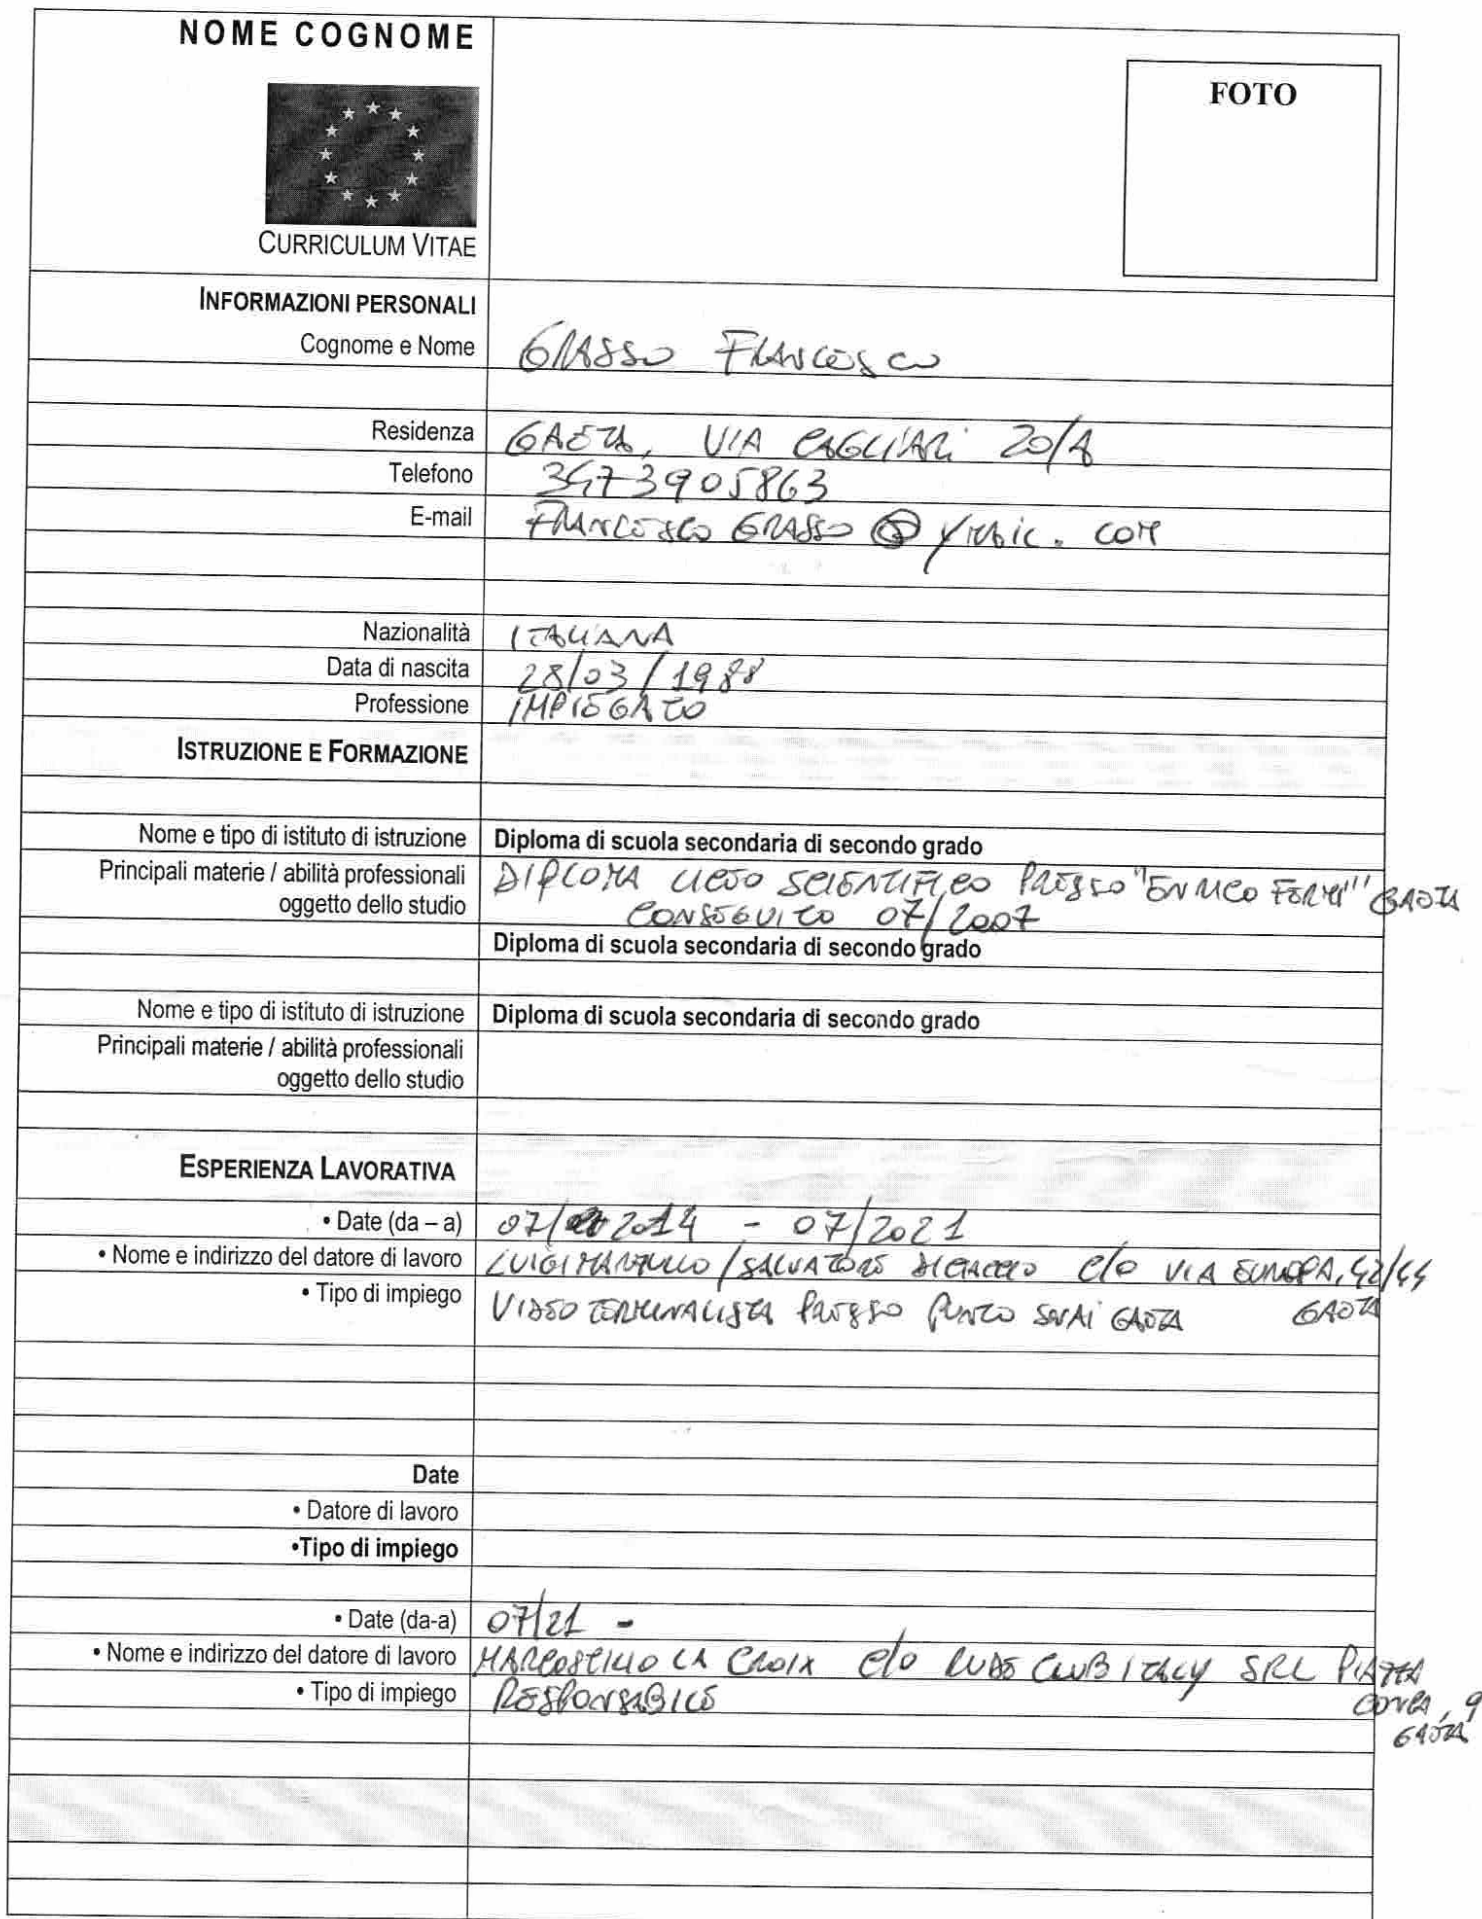 NOME COGNOME
FOTO
CURRICULUM VITAE
INFORMAZIONI PERSONALI
Cognome e Nome GRASSO FRANCESCO
Residenza GAETA, VIA CAGLIARI 20/A
Telefono 3473905863
E-mail FRANCESCO GRASSO @ .COM
Nazionalità ITALIANA
Data di nascita 28/03/1988
Professione IMPIEGATO
ISTRUZIONE E FORMAZIONE
Nome e tipo di istituto di istruzione Diploma di scuola secondaria di secondo grado
Principali materie / abilità professionali DIPLOMA LICEO SCIENTIFICO PRESSO "ENRICO FERMI" GAETA
oggetto dello studio CONSEGUITO 07/2007
Diploma di scuola secondaria di secondo grado
Nome e tipo di istituto di istruzione Diploma di scuola secondaria di secondo grado
Principali materie / abilità professionali
oggetto dello studio
ESPERIENZA LAVORATIVA
• Date (da – a) 07/2014 - 07/2021
• Nome e indirizzo del datore di lavoro LUIGI / SALVATORE C/O VIA EUROPA, 42/44
GAETA
• Tipo di impiego VIDEOTERMINALISTA PRESSO PUNTO SNAI GAETA
Date
• Datore di lavoro
•Tipo di impiego
• Date (da-a) 07/21 -
• Nome e indirizzo del datore di lavoro LA CROIX C/O CLUB ITALY SRL PIAZZA
CONCA, 9
GAETA
• Tipo di impiego RESPONSABILE